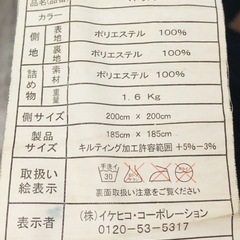 品名(品番)
カラー
側地 表地 ポリエステル 100%
裏地 ポリエステル 100%
詰め物 素材 ポリエステル 100%
重量 1.6Kg
側サイズ 200cm × 200cm
製品サイズ 185cm × 185cm
キルティング加工許容範囲 +5%-3%
取扱い絵表示 手洗イ 30
裏面取扱い注意をご覧ください
表示者 (株)イケヒコ・コーポレーション
0120-53-5317